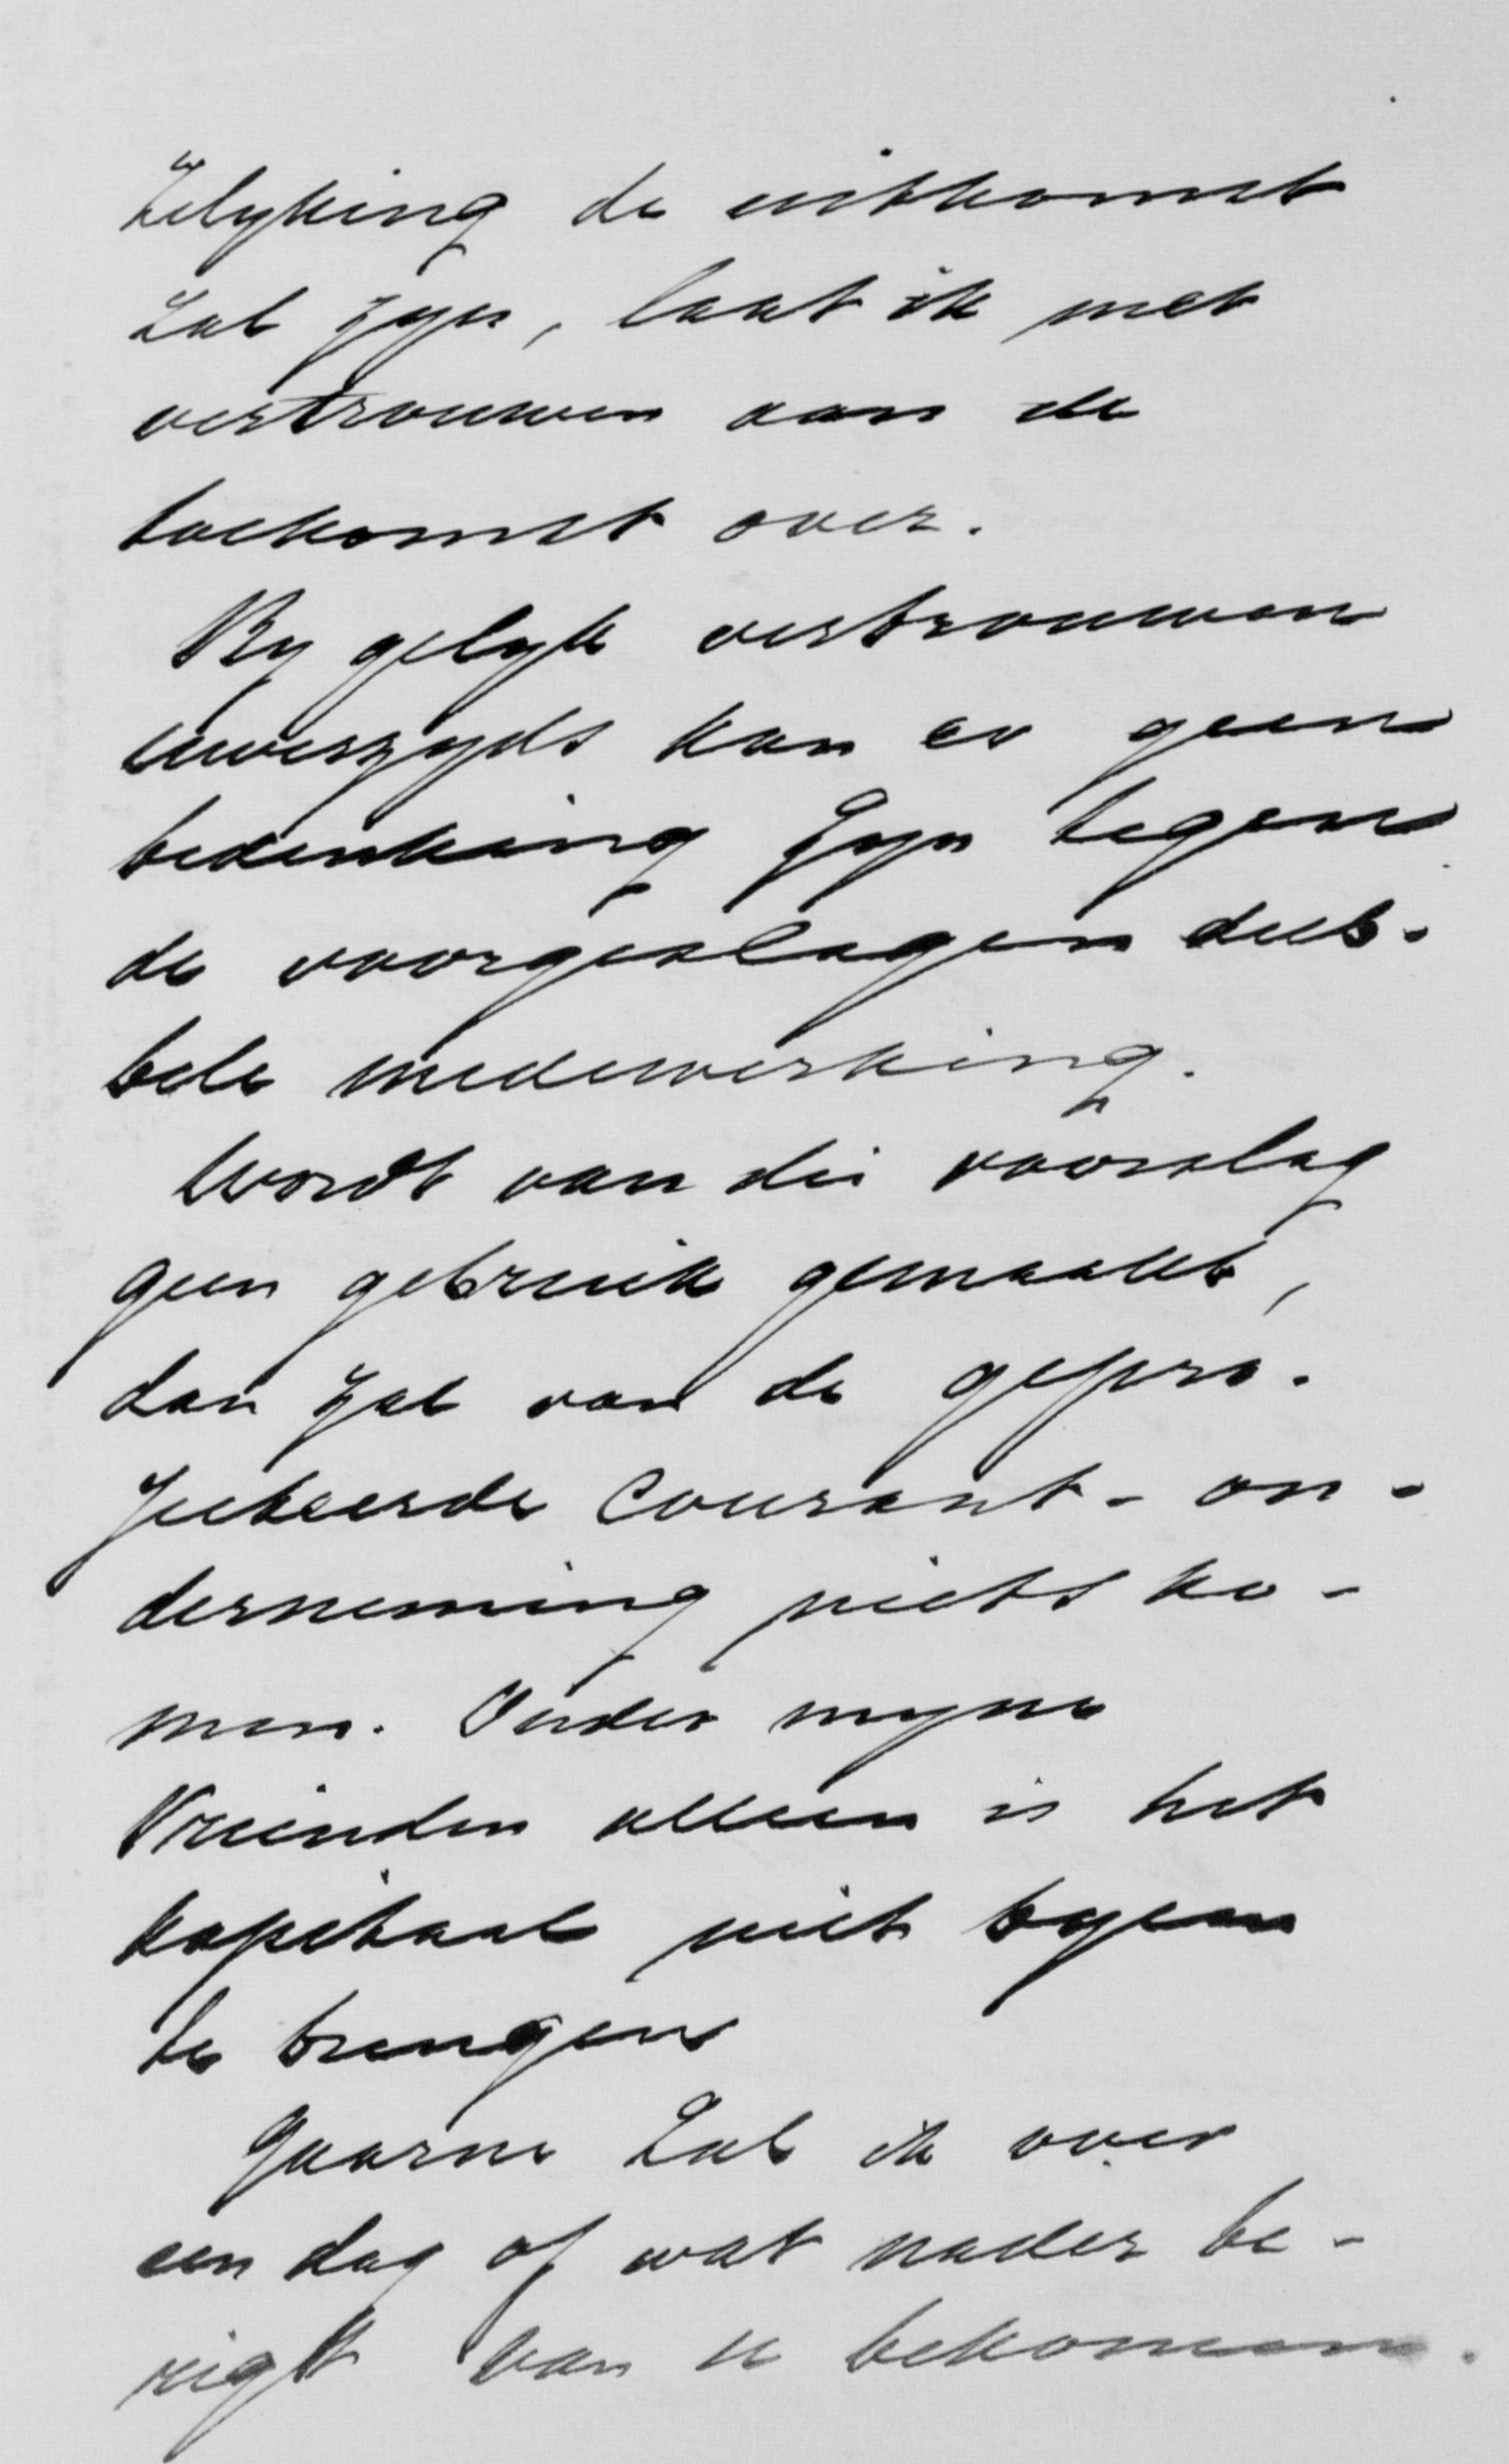 zelyking de uitkomst
zal zyn, laat ik met
vertrouwen aan de
toekomst over.
By gelyk vertrouwen
uwerzyds kan er geen
bedenking zyn tegen
de voorgeslagen dub-
bele medewerking.
Wordt van die voorslag
geen gebruik gemaakt,
dan zal van de gepro-
jecteerde Courant-on-
derneming niets ko-
men. Onder myne
Vrienden alleen is het
kapitaal niet byeen
te brengen
Gaarne zal ik over
een dag of wat nader be-
rigt van u bekomen.